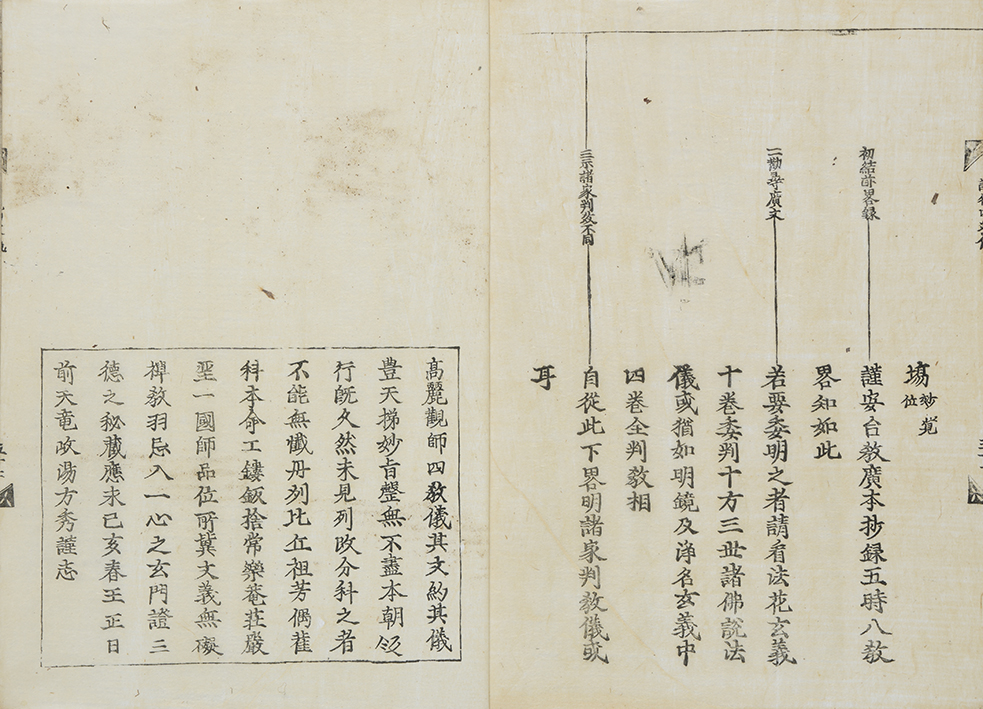 場妙覚位
初結前畧録
謹安台教廣本抄録五時八教
畧知如此
二勧尋廣文
若要委明之者請看法花玄義
十卷委判十方三世諸佛說法
儀或猶如明鏡及淨名玄義中
四卷全判教相
三示諸家判教不同
自從此下畧明諸家判教儀或
耳
高麗觀師四教儀其文約其儀
豊天梯妙旨罄無不盡本朝
行既久然未見列改分科之者
不能無懺丹列比丘祖芳偶
科本命工鏤鈑捨常樂菴荘嚴
聖一國師品位所冀文義無礙
禅教羽忌入一心之玄門證三
德之秘藏應永己亥春王正日
前天竜岐陽方秀謹志